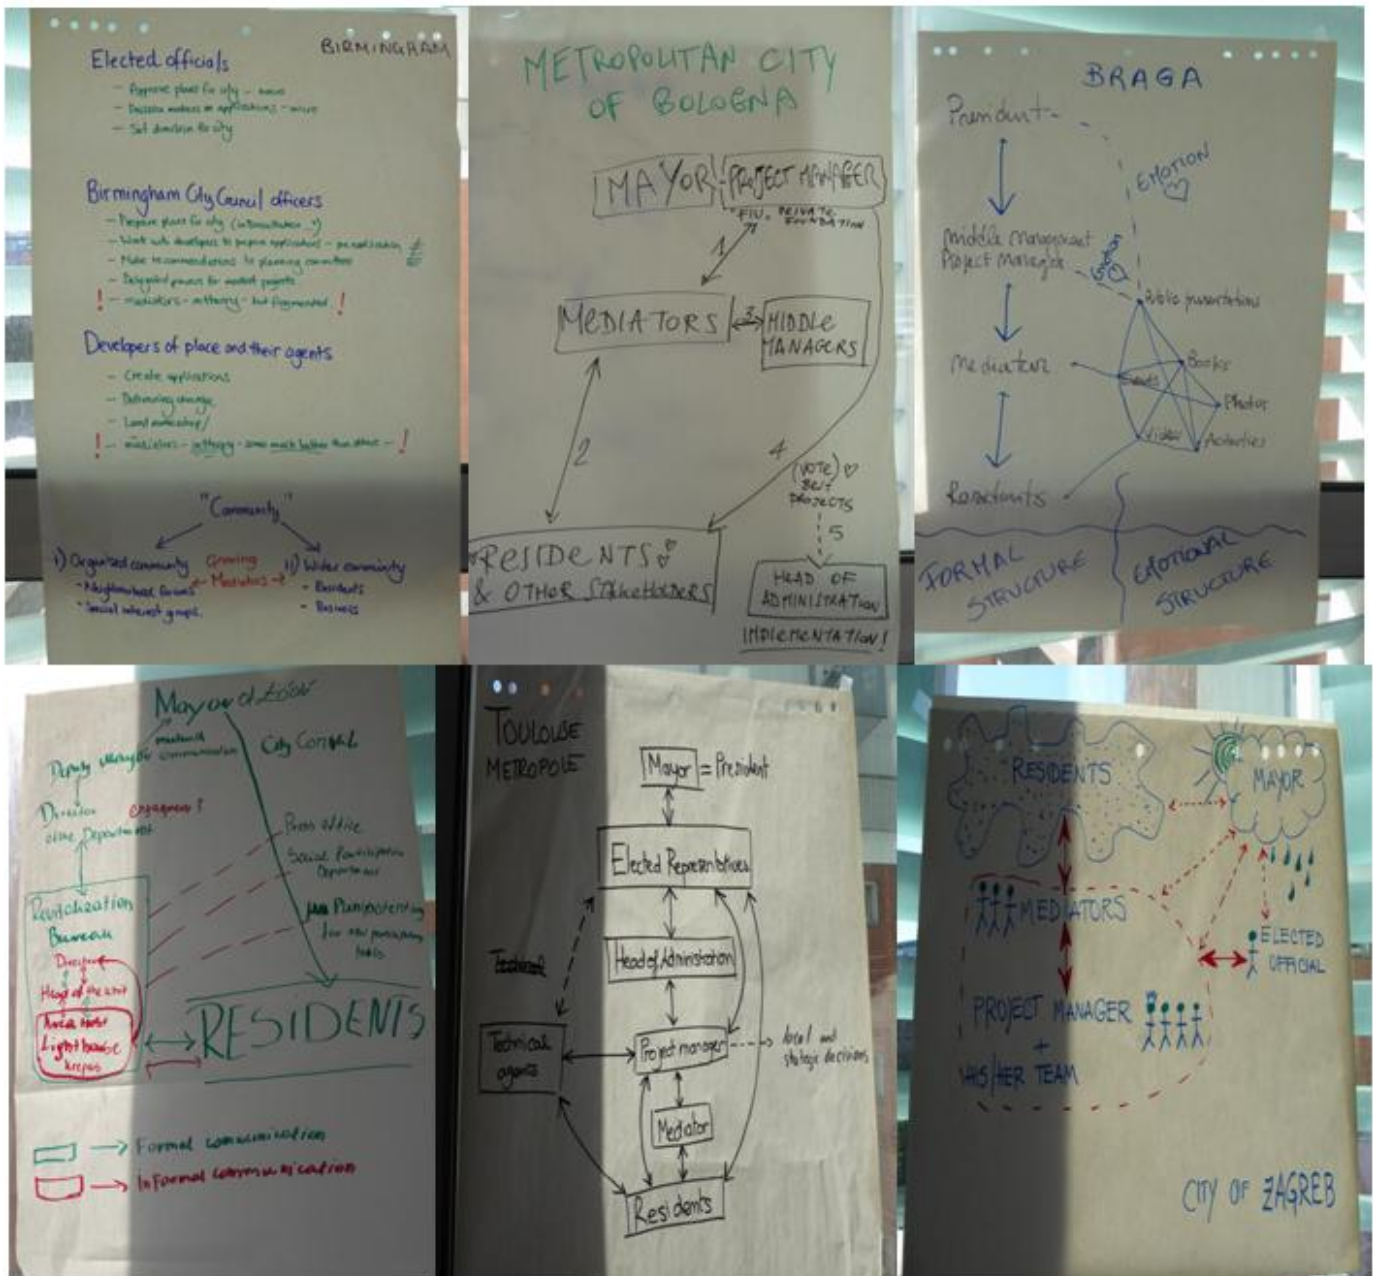 BIRMINGRAM
Elected officials
- Approve plans for city
- Decision makers on applications
- Set direction for city
Birmingham City Council officers
- Prepare plans for city
- Work with developers to prepare applications - pre application
- Make recommendations to planning committee
- Delegated powers for
! - mediators - in theory - but fragmented !
Developers of place and their agents
- Create applications
- Determining change
- Land ownership/
! - mediators - in theory - some much better than others - !
"Community"
i) Organised community
- Neighbourhood forums
- Special interest groups.
Growing
Mediators
ii) Wider community
- Residents
- Business
METROPOLITAN CITY
OF BOLOGNA
MAYOR
PROJECT MANAGER
FIU. PRIVATE
FOUNDATION
1
MEDIATORS
3
MIDDLE
MANAGERS
2
4
(VOTE)
BEST
PROJECTS
5
RESIDENTS
& OTHER STAKEHOLDERS
HEAD OF
ADMINISTRATION
IMPLEMENTATION!
BRAGA
President
EMOTION
Middle Management
Project Manager
Public presentations
Mediator
Books
Photos
Video
Activities
Residents
FORMAL
STRUCTURE
EMOTIONAL
STRUCTURE
Mayor of Łódź
City Council
Deputy Mayor
communication
Director
of the Department
engagement?
Press office
Social Participation
Department
Plenipotentiary
for new participatory
tools
Revitalization
Bureau
Director
Head of the unit
Area host
Lighthouse
keepers
RESIDENTS
Formal communication
Informal communication
TOULOUSE
METROPOLE
Mayor = President
Elected Representatives
Head of Administration
Technical
Technical
agents
Project manager
local and
strategic decisions
Mediator
Residents
RESIDENTS
MAYOR
MEDIATORS
ELECTED
OFFICIAL
PROJECT MANAGER
+
HIS/HER TEAM
CITY OF ZAGREB